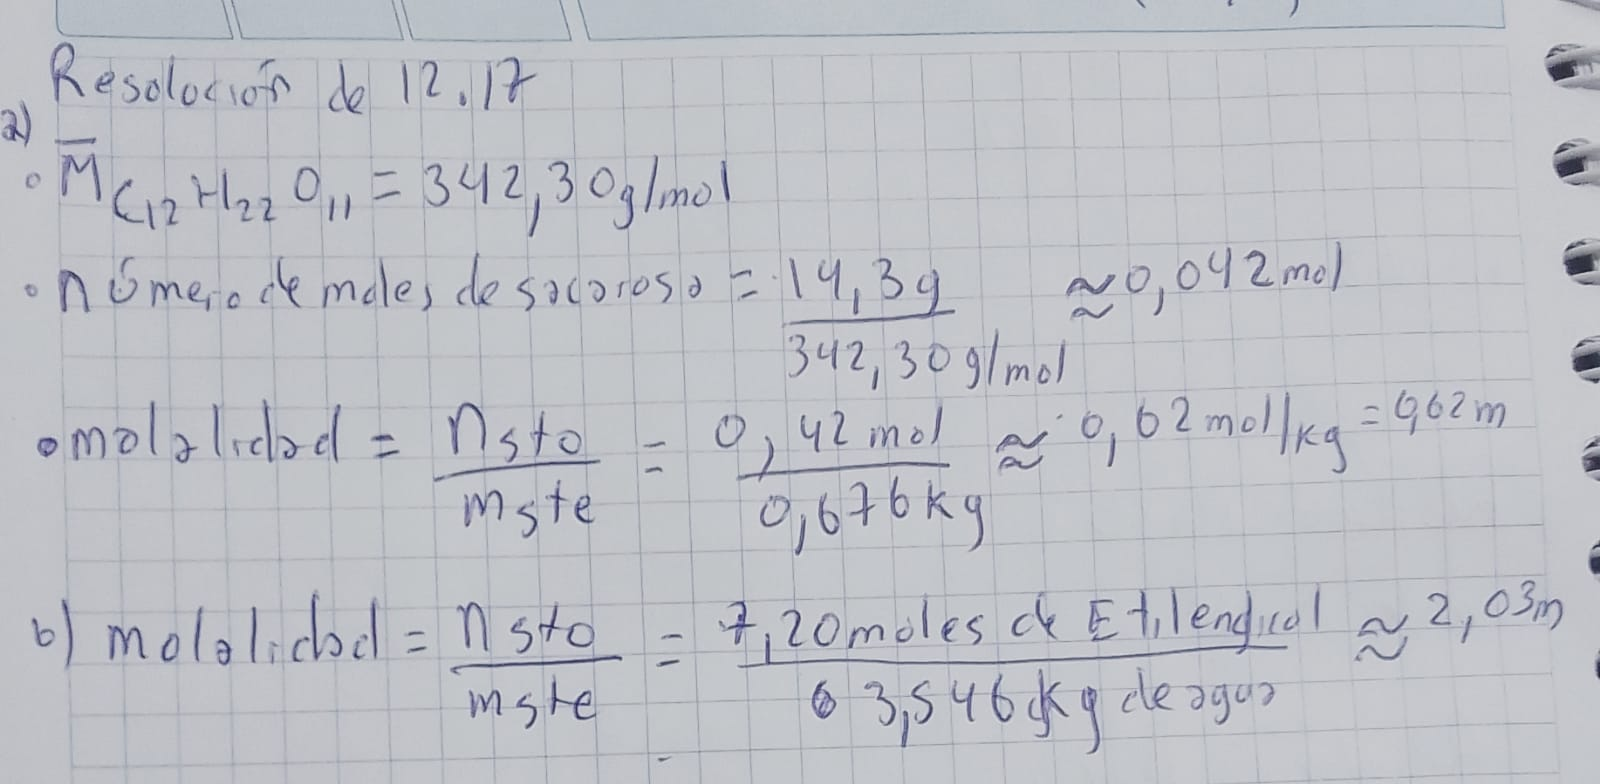 Resolución de 12.17
a)
• M̅ C12 H22 O11 = 342,30g/mol
• número de moles de sacarosa = 14,3g / 342,30g/mol ≈ 0,042mol
• molalidad = nsto / mste = 0,42mol / 0,676kg ≈ 0,62mol/kg = 0,62m
b) molalidad = nsto / mste = 7,20moles de Etilenglicol / 3,546kg de agua ≈ 2,03m